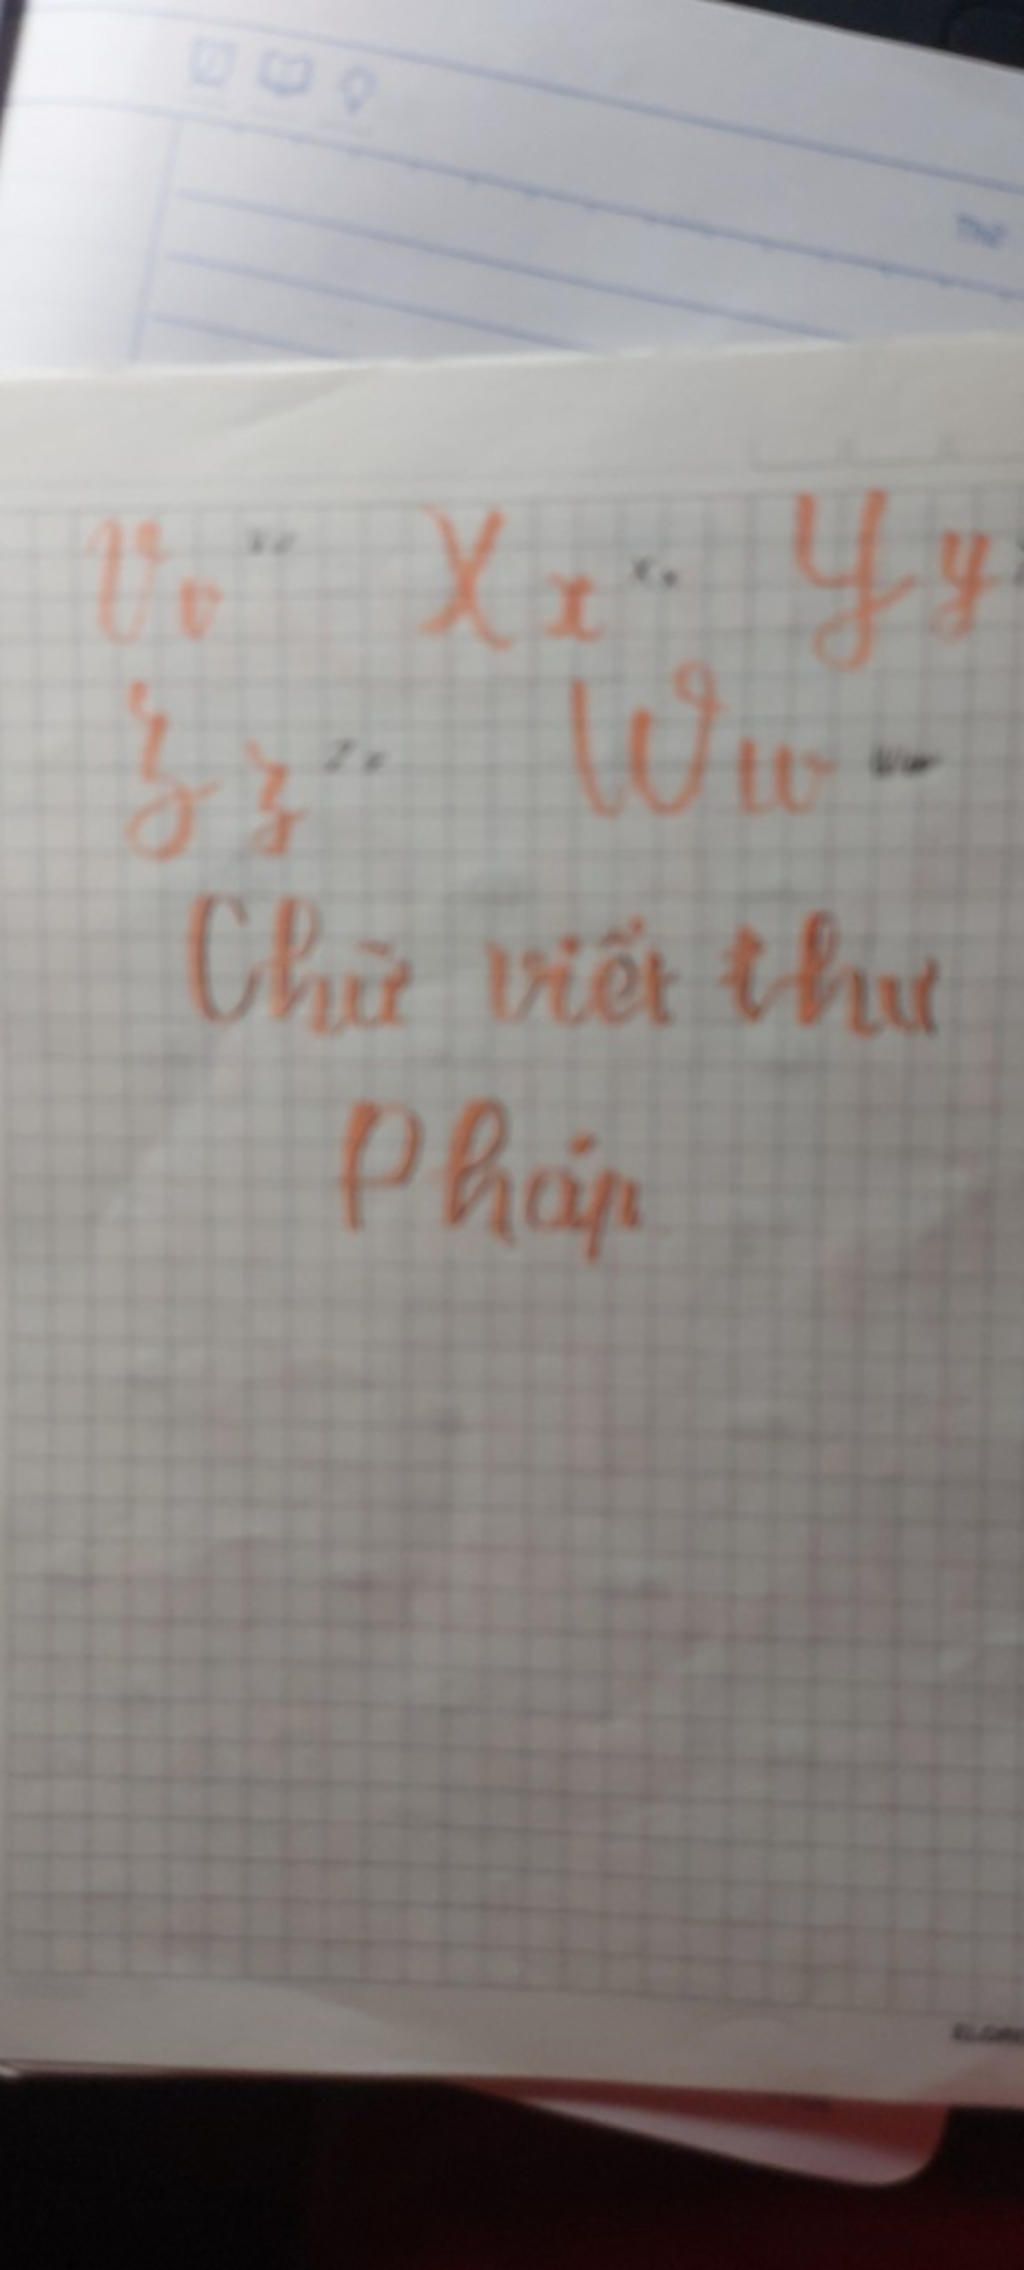 Thứ
V v Vv X x Xx Y y
Z z Zz W w Ww
Chữ viết thư
Pháp